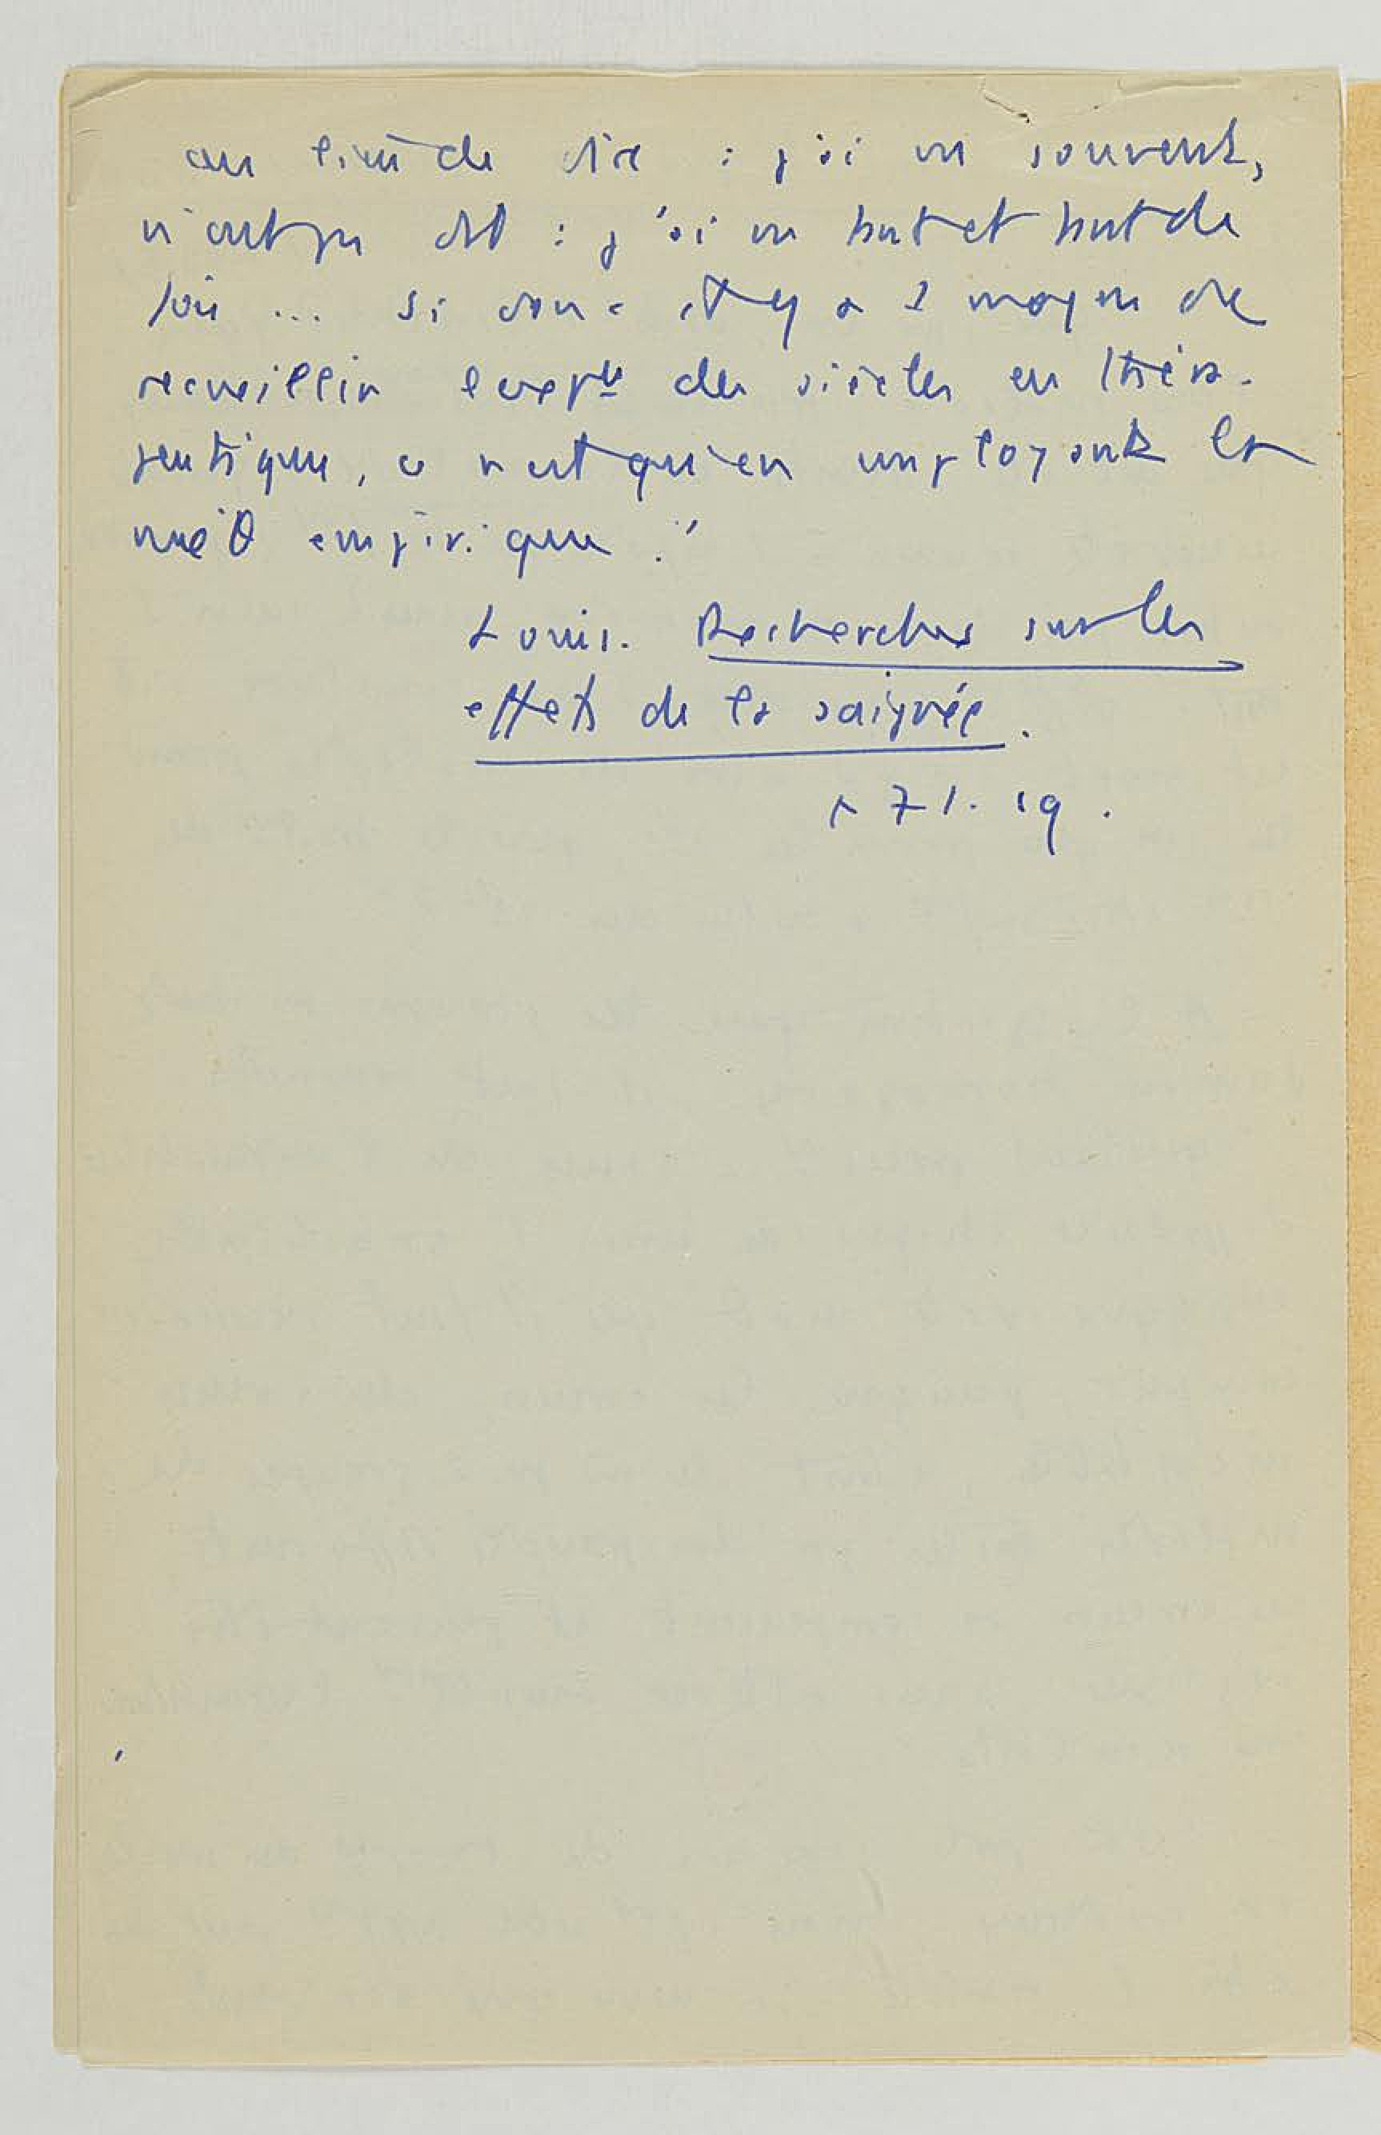 au lieu de dire : j'ai vu souvent,
n'ont pu dit : j'ai vu tant et tant de
fois ... Si donc il y a 1 moyen de
recueillir l'expce des siècles en théra-
peutique, ce n'est qu'en employant la
méθ empirique."
Louis. Recherches sur les
effets de la saignée.
p 71. 19.